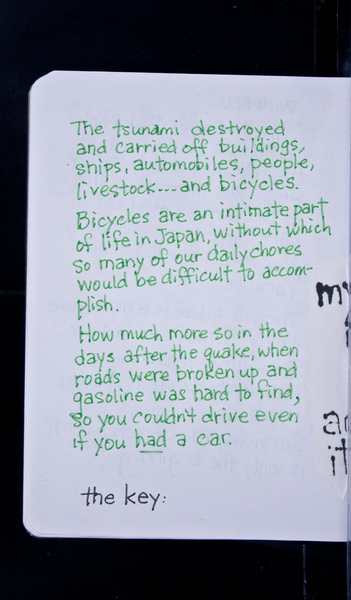 The tsunami destroyed
and carried off buildings,
ships, automobiles, people,
livestock---and bicycles.
Bicycles are an intimate part
of life in Japan, without which
so many of our daily chores
would be difficult to accom-
plish.
How much more so in the
days after the quake, when
roads were broken up and
gasoline was hard to find,
so you couldn't drive even
if you had a car.
the key: